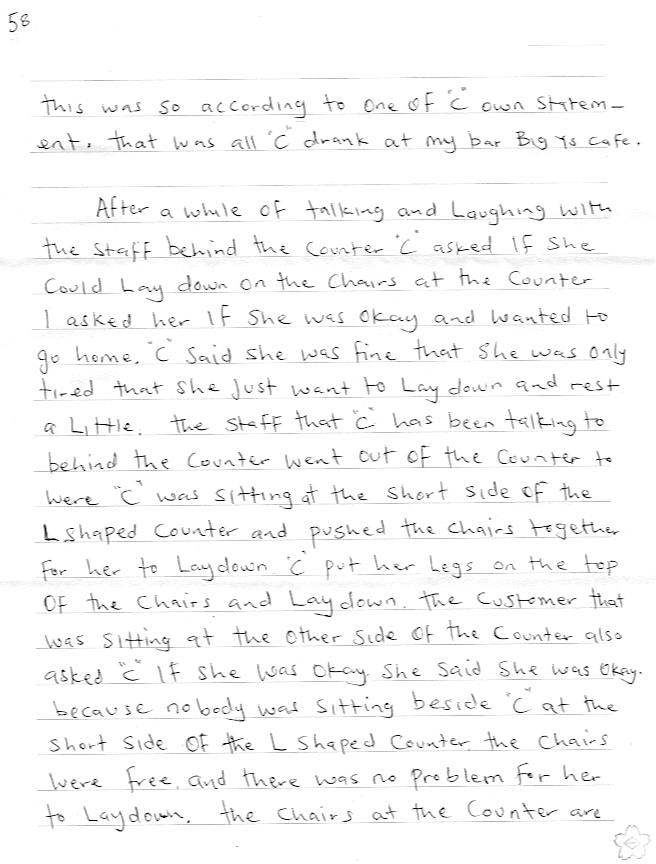 58
this was so according to one of "C" own statem-
ent. that was all "C" drank at my bar Big Ys cafe.
After a while of talking and Laughing with
the staff behind the counter "C" asked If she
Could Lay down on the Chairs at the Counter
I asked her If she was okay and wanted to
go home. "C" said she was fine that she was only
tired that she just want to Lay down and rest
a Little. the staff that "C" has been talking to
behind the Counter went out of the Counter to
were "C" was sitting at the short side of the
L shaped Counter and pushed the chairs together
For her to Laydown. "C" put her Legs on the top
OF the Chairs and Laydown. the Customer that
was sitting at the other side of the Counter also
asked "C" If she was okay. she said she was okay.
because nobody was sitting beside "C" at the
short side of the L shaped Counter. the Chairs
were free, and there was no problem for her
to Laydown. the chairs at the Counter are